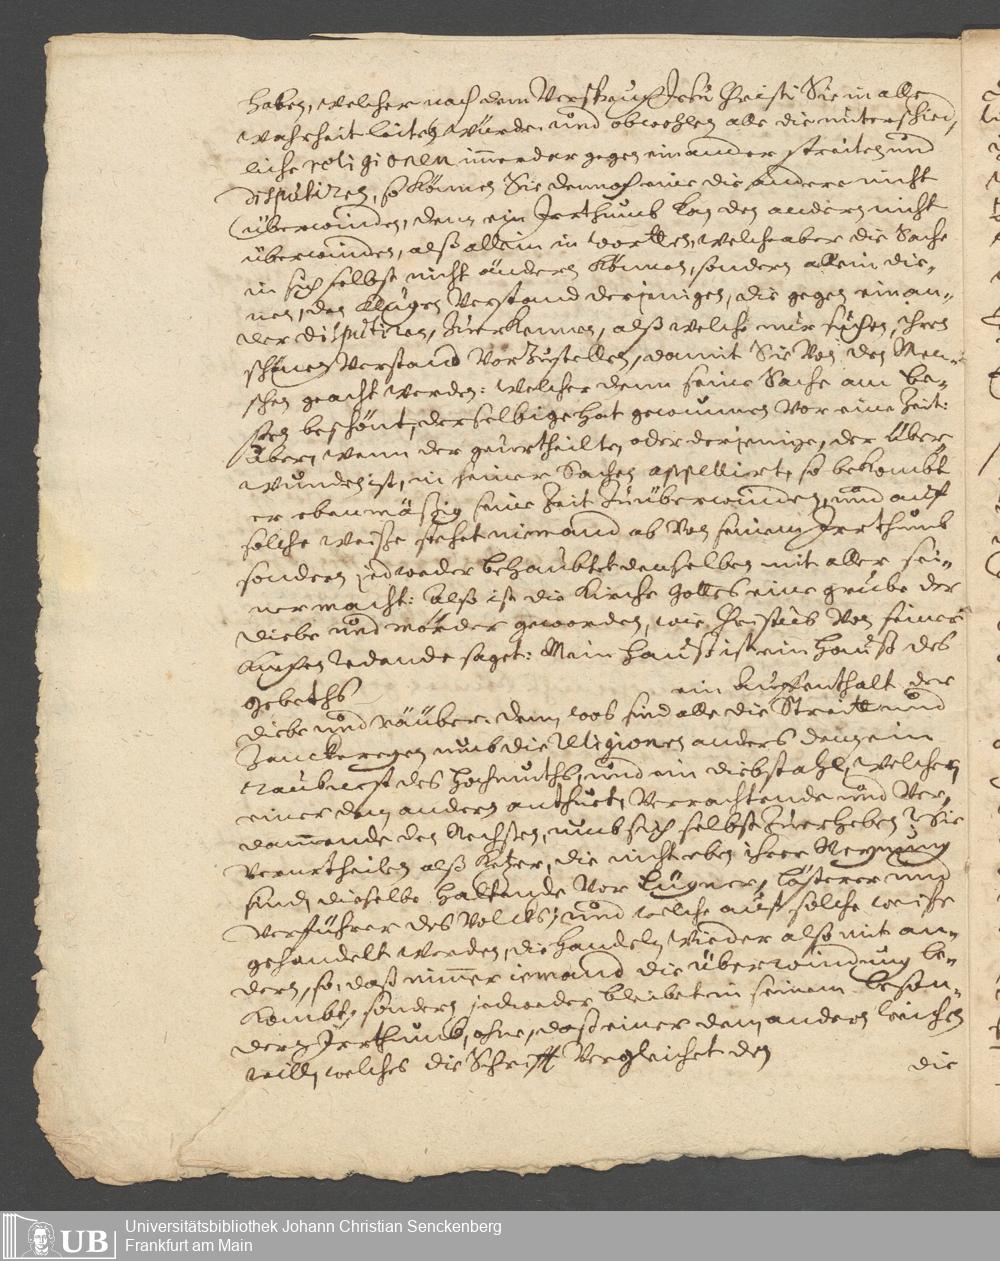 haben, welcher nach dem Verspruch Jesu Christi Sie in alle
wahrheit leiten würde. und obwohlen alle die unterschied,
liche religionen im̅erdar gegen einander streiten und
disputiren, so können Sie dennoch eine die andere nicht
überwinden, denn ein Irrthumb kan den andern nicht
überwinden, alß allein in wortten, welche aber die Sache
in sich selbst nicht ändern können, sondern allein die,,
nen, den klugen Verstand derjenigen, die gegen einan,,
der disputiren, zuerkennen, alß welche nur suchen, ihren
schönen Verstand Vorzustellen, damit Sie Von den Men,,
schen geacht werden: welcher denn seine Sache am be,,
sten beschönt, derselbige hat gewunnen vor eine Zeit:
Aber, wenn der geurtheilte, oder derjenige, der Über,,
wunden ist, in seiner Sachen appellirt, so bekombt
er ebenmäszig seine Zeit zuüberwinden, und auf
solche weise stehet niemand ab Von seinem Irrthumb
sondern jedweder behaubtet denselben mit aller sei,,
ner macht: Alß ist die Kirche Gottes eine grube der
diebe und mörder geworden, wie Christus Von seiner
Kirchen redende saget: Mein hauß ist ein Hauß des
gebeths ein Auffenthalt der
diebe und räuber. denn was sind alle die Streitt und
Zanckereyen umb die Religionen anders denn ein
raubnest des hochmuths, und ein diebstahl, welchen
einer dem andern anthuet, Verachtende und Ver,,
dam̅ende den Nechsten, umb sich selbst zuerheben? Sie
verurtheilen alß Ketzer, die nicht eben ihrer Meynung
sind, dieselbe haltende Vor Lügner, lästerer und
Verführer des Volcks; und welche auf solche weise
gehandelt werden, die handeln wieder also mit an,,
dern, so, daß nim̅er iemand die überwindung be,,
kombt, sondern jedweder bleibet in seinem beson,,
dern Irrthumb, ohne, daß einer dem andern weichen
will, welches die Schrifft Vergleichet den
die
Universitätsbibliothek Johann Christian Senckenberg
Frankfurt am Main
UB